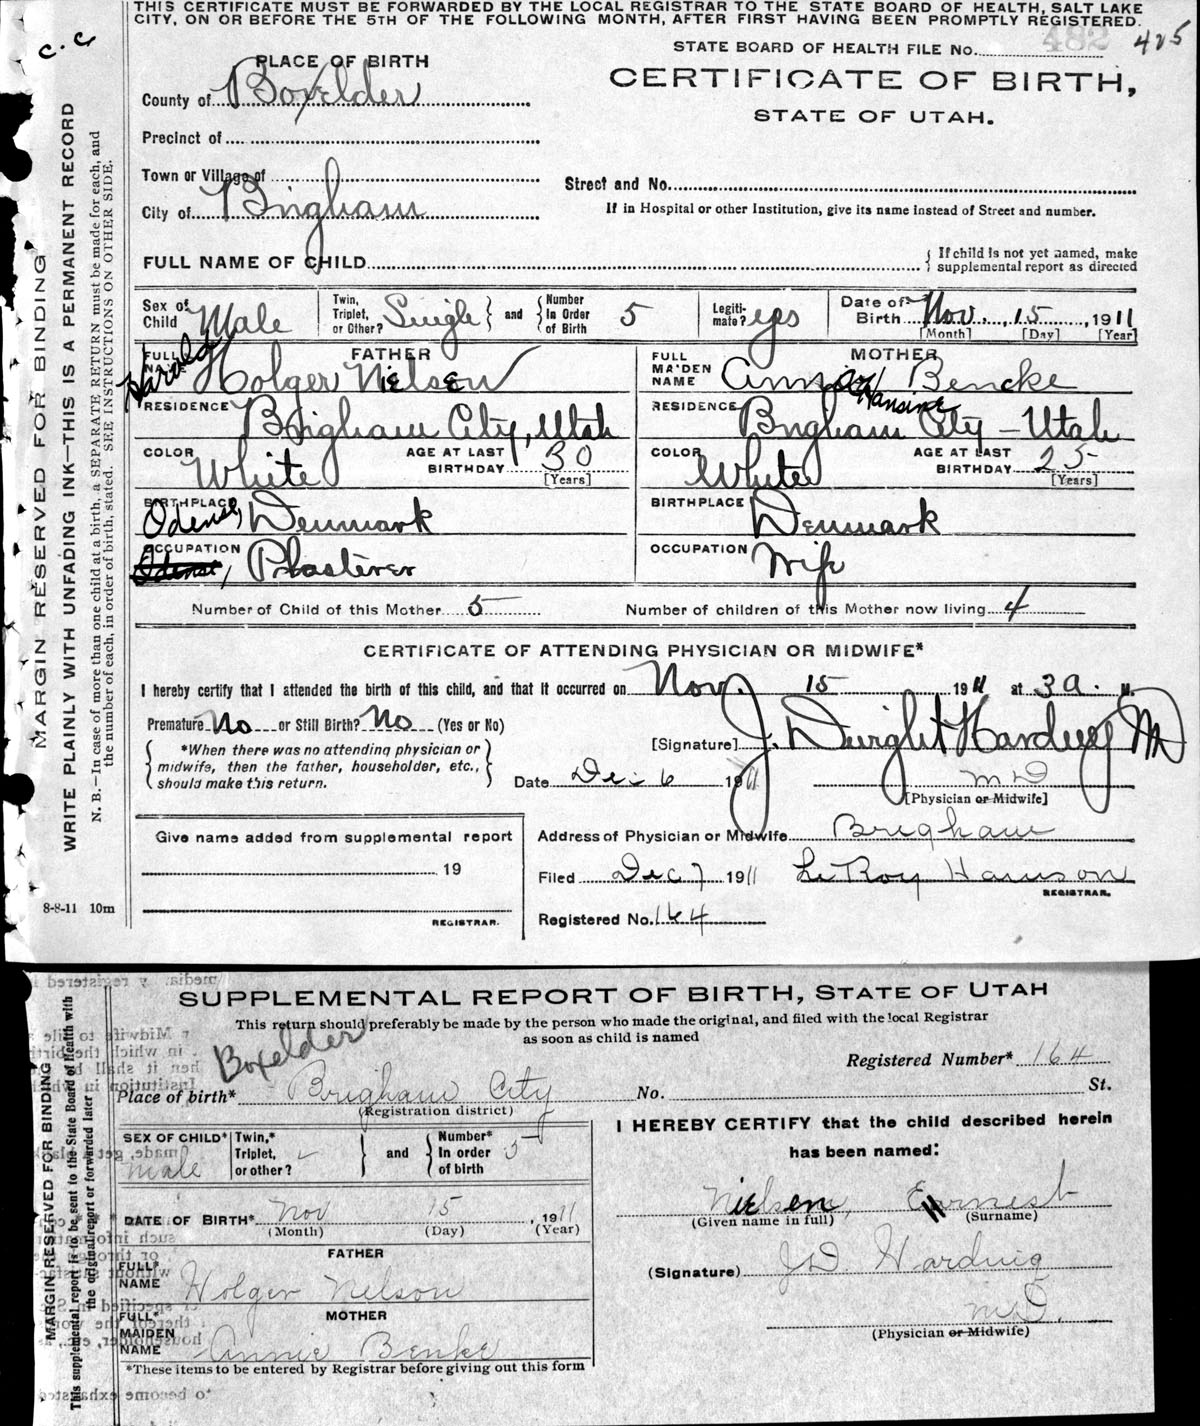 THIS CERTIFICATE MUST BE FORWARDED BY THE LOCAL REGISTRAR TO THE STATE BOARD OF HEALTH, SALT LAKE
CITY, ON OR BEFORE THE 5TH OF THE FOLLOWING MONTH, AFTER FIRST HAVING BEEN PROMPTLY REGISTERED.
c. c.
STATE BOARD OF HEALTH FILE No. 482 405
PLACE OF BIRTH
CERTIFICATE OF BIRTH,
STATE OF UTAH.
County of Boxelder
Precinct of
Town or Village of
City of Bingham
Street and No.
If in Hospital or other Institution, give its name instead of Street and number.
FULL NAME OF CHILD
If child is not yet named, make
supplemental report as directed
Sex of Child Male
Twin, Triplet, or Other? Single and Number In Order of Birth 5
Legitimate? yes
Date of Birth Nov. 15, 1911
[Month] [Day] [Year]
FATHER
FULL NAME Harold Holger Nielsen
RESIDENCE Brigham City, Utah
COLOR White AGE AT LAST BIRTHDAY 30
[Years]
BIRTHPLACE Odense, Denmark
OCCUPATION Odense, Plasterer
MOTHER
FULL MAIDEN NAME Annie Hansine Bencke
RESIDENCE Brigham City - Utah
COLOR White AGE AT LAST BIRTHDAY 25
[Years]
BIRTHPLACE Denmark
OCCUPATION Wife
Number of Child of this Mother 5 Number of children of this Mother now living 4
CERTIFICATE OF ATTENDING PHYSICIAN OR MIDWIFE*
I hereby certify that I attended the birth of this child, and that it occurred on Nov. 15 1911 at 3 a. M.
Premature No or Still Birth? No (Yes or No)
*When there was no attending physician or
midwife, then the father, householder, etc.,
should make this return.
[Signature] J. Dwight Harding MD
Date Dec 6 1911 MD
[Physician or Midwife]
Give name added from supplemental report
19
REGISTRAR.
Address of Physician or Midwife Brigham
Filed Dec 7 1911 LeRoy
REGISTRAR.
Registered No. 164
MARGIN RESERVED FOR BINDING
WRITE PLAINLY WITH UNFADING INK—THIS IS A PERMANENT RECORD
N. B.—In case of more than one child at a birth, a SEPARATE RETURN must be made for each, and
the number of each, in order of birth, stated. SEE INSTRUCTIONS ON OTHER SIDE.
8-8-11 10m
SUPPLEMENTAL REPORT OF BIRTH, STATE OF UTAH
This return should preferably be made by the person who made the original, and filed with the local Registrar
as soon as child is named
Boxelder
Registered Number* 164
Place of birth* Brigham City No. St.
(Registration district)
SEX OF CHILD* Male
Twin,* Triplet, or other? and Number* In order of birth 5
DATE OF BIRTH* Nov 15, 1911
(Month) (Day) (Year)
FATHER
FULL* NAME Holger Nelson
MOTHER
FULL* MAIDEN NAME Annie Benke
*These items to be entered by Registrar before giving out this form
I HEREBY CERTIFY that the child described herein
has been named:
Nielsen, Ernest
(Given name in full) (Surname)
(Signature) J D Harding
M.D.
(Physician or Midwife)
MARGIN RESERVED FOR BINDING
This supplemental report is to be sent to the State Board of Health with
the original report or forwarded later